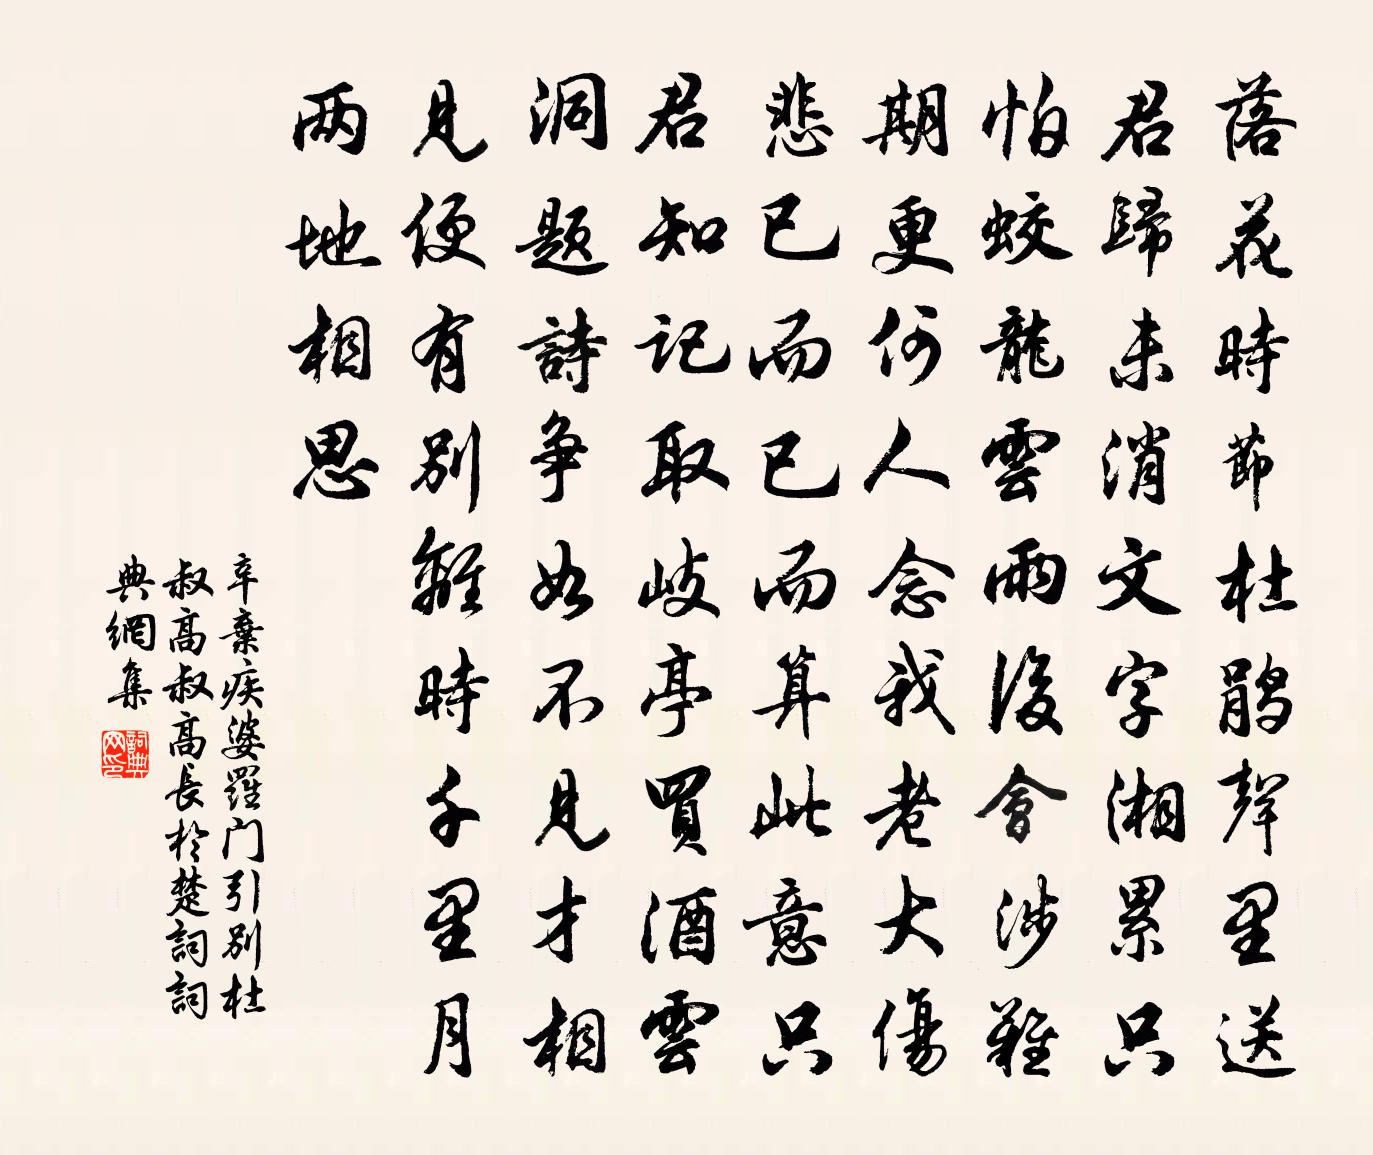 落花時節杜鹃聲里送
君歸未消文字湘累只
怕蛟龍雲雨後會渺難
期更何人念我老大傷
悲已而已而算此意只
君知记取岐亭買酒雲
洞题詩争如不见才相
见便有别離時千里月
两地相思
辛棄疾婆羅门引别杜
叔高叔高長於楚詞詞
典網集
詞典网印